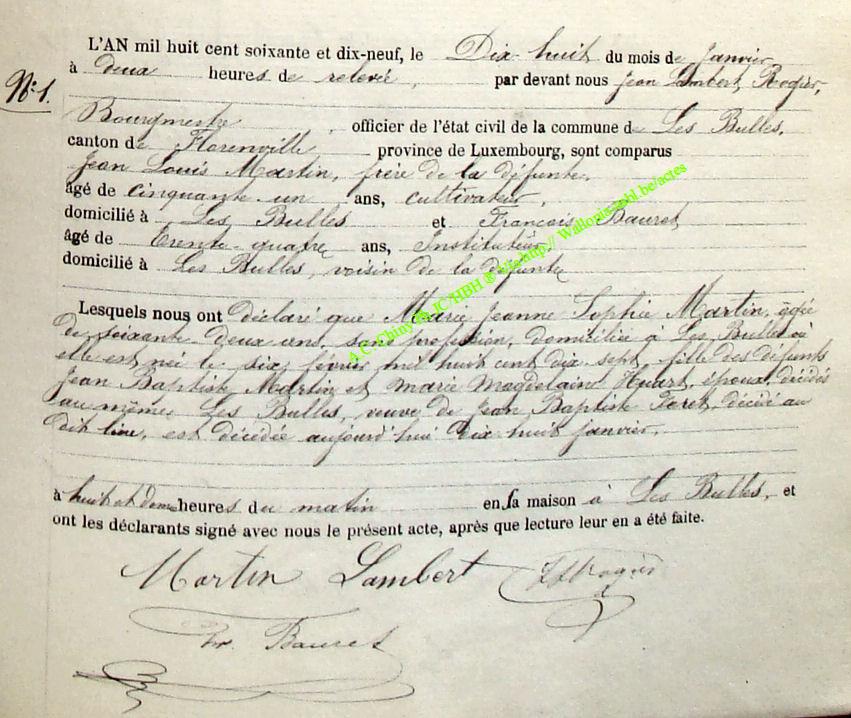 L'AN mil huit cent soixante et dix-neuf, le Dix huit du mois de Janvier
à deux heures de relevée, par devant nous Jean Lambert Rogier,
N° 1.
Bourgmestre, officier de l'état civil de la commune de Les Bulles,
canton de Florenville province de Luxembourg, sont comparus
Jean Louis Martin, frère de la défunte,
âgé de cinquante un ans, cultivateur,
domicilié à Les Bulles et François Bauret
âgé de trente-quatre ans, Instituteur
domicilié à Les Bulles, voisin de la défunte
Lesquels nous ont déclaré que Marie Jeanne Sophie Martin, agée
de soixante deux ans, sans profession, domiciliée à Les Bulles où
elle est née le six février mil huit cent dix sept, fille des défunts
Jean Baptiste Martin et marie Magdelaine Huart, époux, décédés
au même Les Bulles, veuve de Jean Baptiste Feret, décédé au
dit lieu, est décédée aujourd'hui dix huit Janvier,
à huit et demie heures du matin en sa maison à Les Bulles, et
ont les déclarants signé avec nous le présent acte, après que lecture leur en a été faite.
Martin Lambert
Fr. Bauret